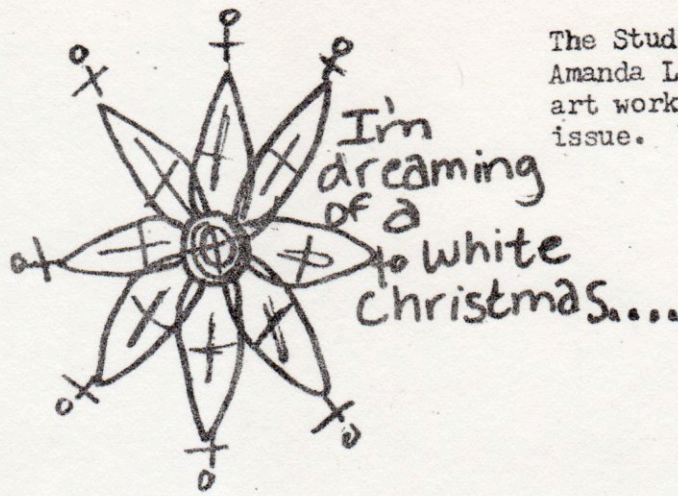 The Stud
Amanda L
art work
issue.
I'm
dreaming
of a
white
christmas....